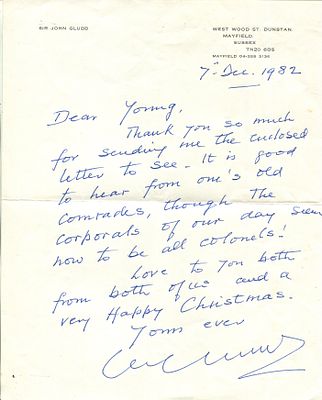 SIR JOHN GLUBB
WEST WOOD ST. DUNSTAN
MAYFIELD
SUSSEX
TN20 6DS
MAYFIELD 04-353 3136
7th Dec. 1982
Dear Young,
Thank you so much
for sending me the enclosed
letter to see. It is good
to hear from one's old
comrades, though the
corporals of our day seem
now to be all colonels!
Love to you both
from both of us and a
very Happy Christmas.
Yours ever